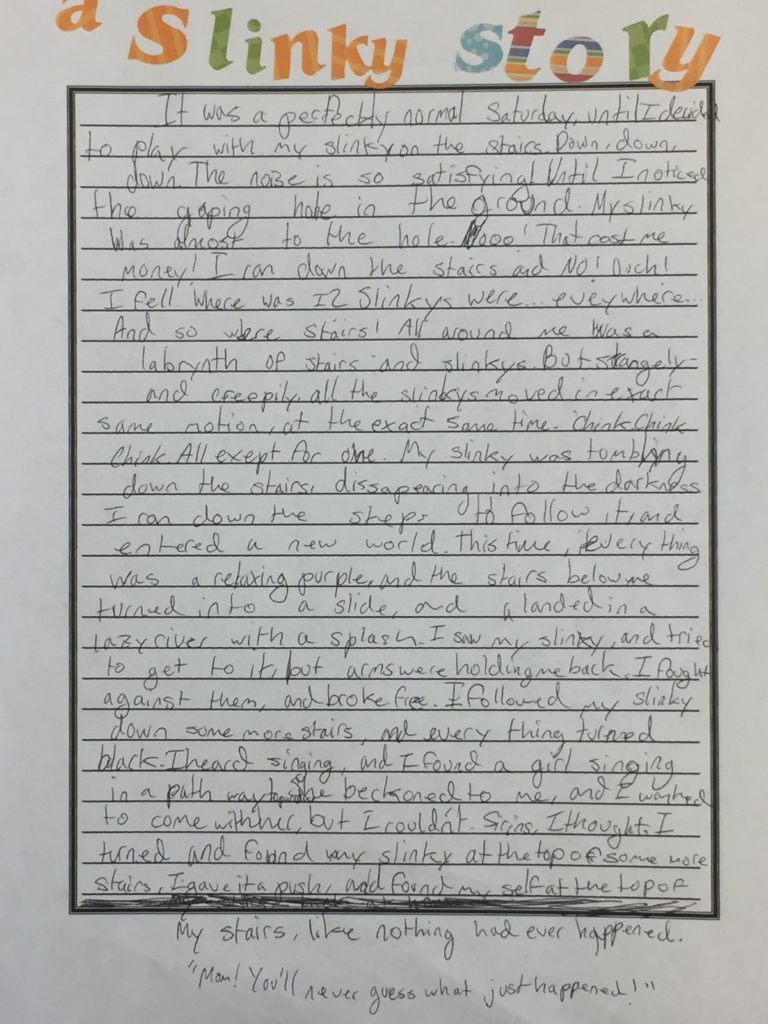 a slinky story
It was a perfectly normal Saturday, until I decided
to play with my slinky on the stairs. Down, down,
down. The noise is so satisfying! Until I noticed
the gaping hole in the ground. My slinky
was almost to the hole. Nooo! That cost me
money! I ran down the stairs and NO! Ouch!
I fell. Where was I? Slinkys were... eveywhere...
And so were stairs! All around me was a
labrynth of stairs and slinkys. But stangely
and creepily, all the slinkys moved in exact
same motion, at the exact same time. Chink Chink
Chink. All exept for one. My slinky was tumbling
down the stairs, dissapearing into the darkness
I ran down the steps to follow it, and
entered a new world. This time, everything
was a relaxing purple, and the stairs below me
turned into a slide, and a landed in a
lazy river with a splash. I saw my slinky, and tried
to get to it, but arms were holding me back. I fought
against them, and broke free. I followed my slinky
down some more stairs, and every thing turned
black. I heard singing, and I found a girl singing
in a path way. She beckoned to me, and I wanted
to come with her, but I couldn't. Sirins, I thought. I
turned and found my slinky at the top of some more
stairs. I gave it a push, and found my self at the top of
My stairs, like nothing had ever happened.
"Mom! You'll never guess what just happened!"